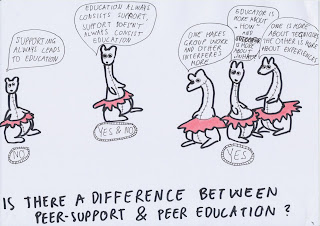 SUPPORTING
ALWAYS LEADS
TO EDUCATION
EDUCATION ALWAYS
CONSISTS SUPPORT,
SUPPORT DOESN'T
ALWAYS CONSIST
EDUCATION
ONE MAKES
GROUP WORK
AND OTHER
INTERFERES
MORE
EDUCATOR IS
MORE ABOUT
"HOW"
AND
IS MORE
ABOUT
ONE IS MORE
ABOUT TECHNIQUES
THE OTHER IS MORE
ABOUT EXPERIENCES
NO
YES & NO
YES
IS THERE A DIFFERENCE BETWEEN
PEER-SUPPORT & PEER EDUCATION?